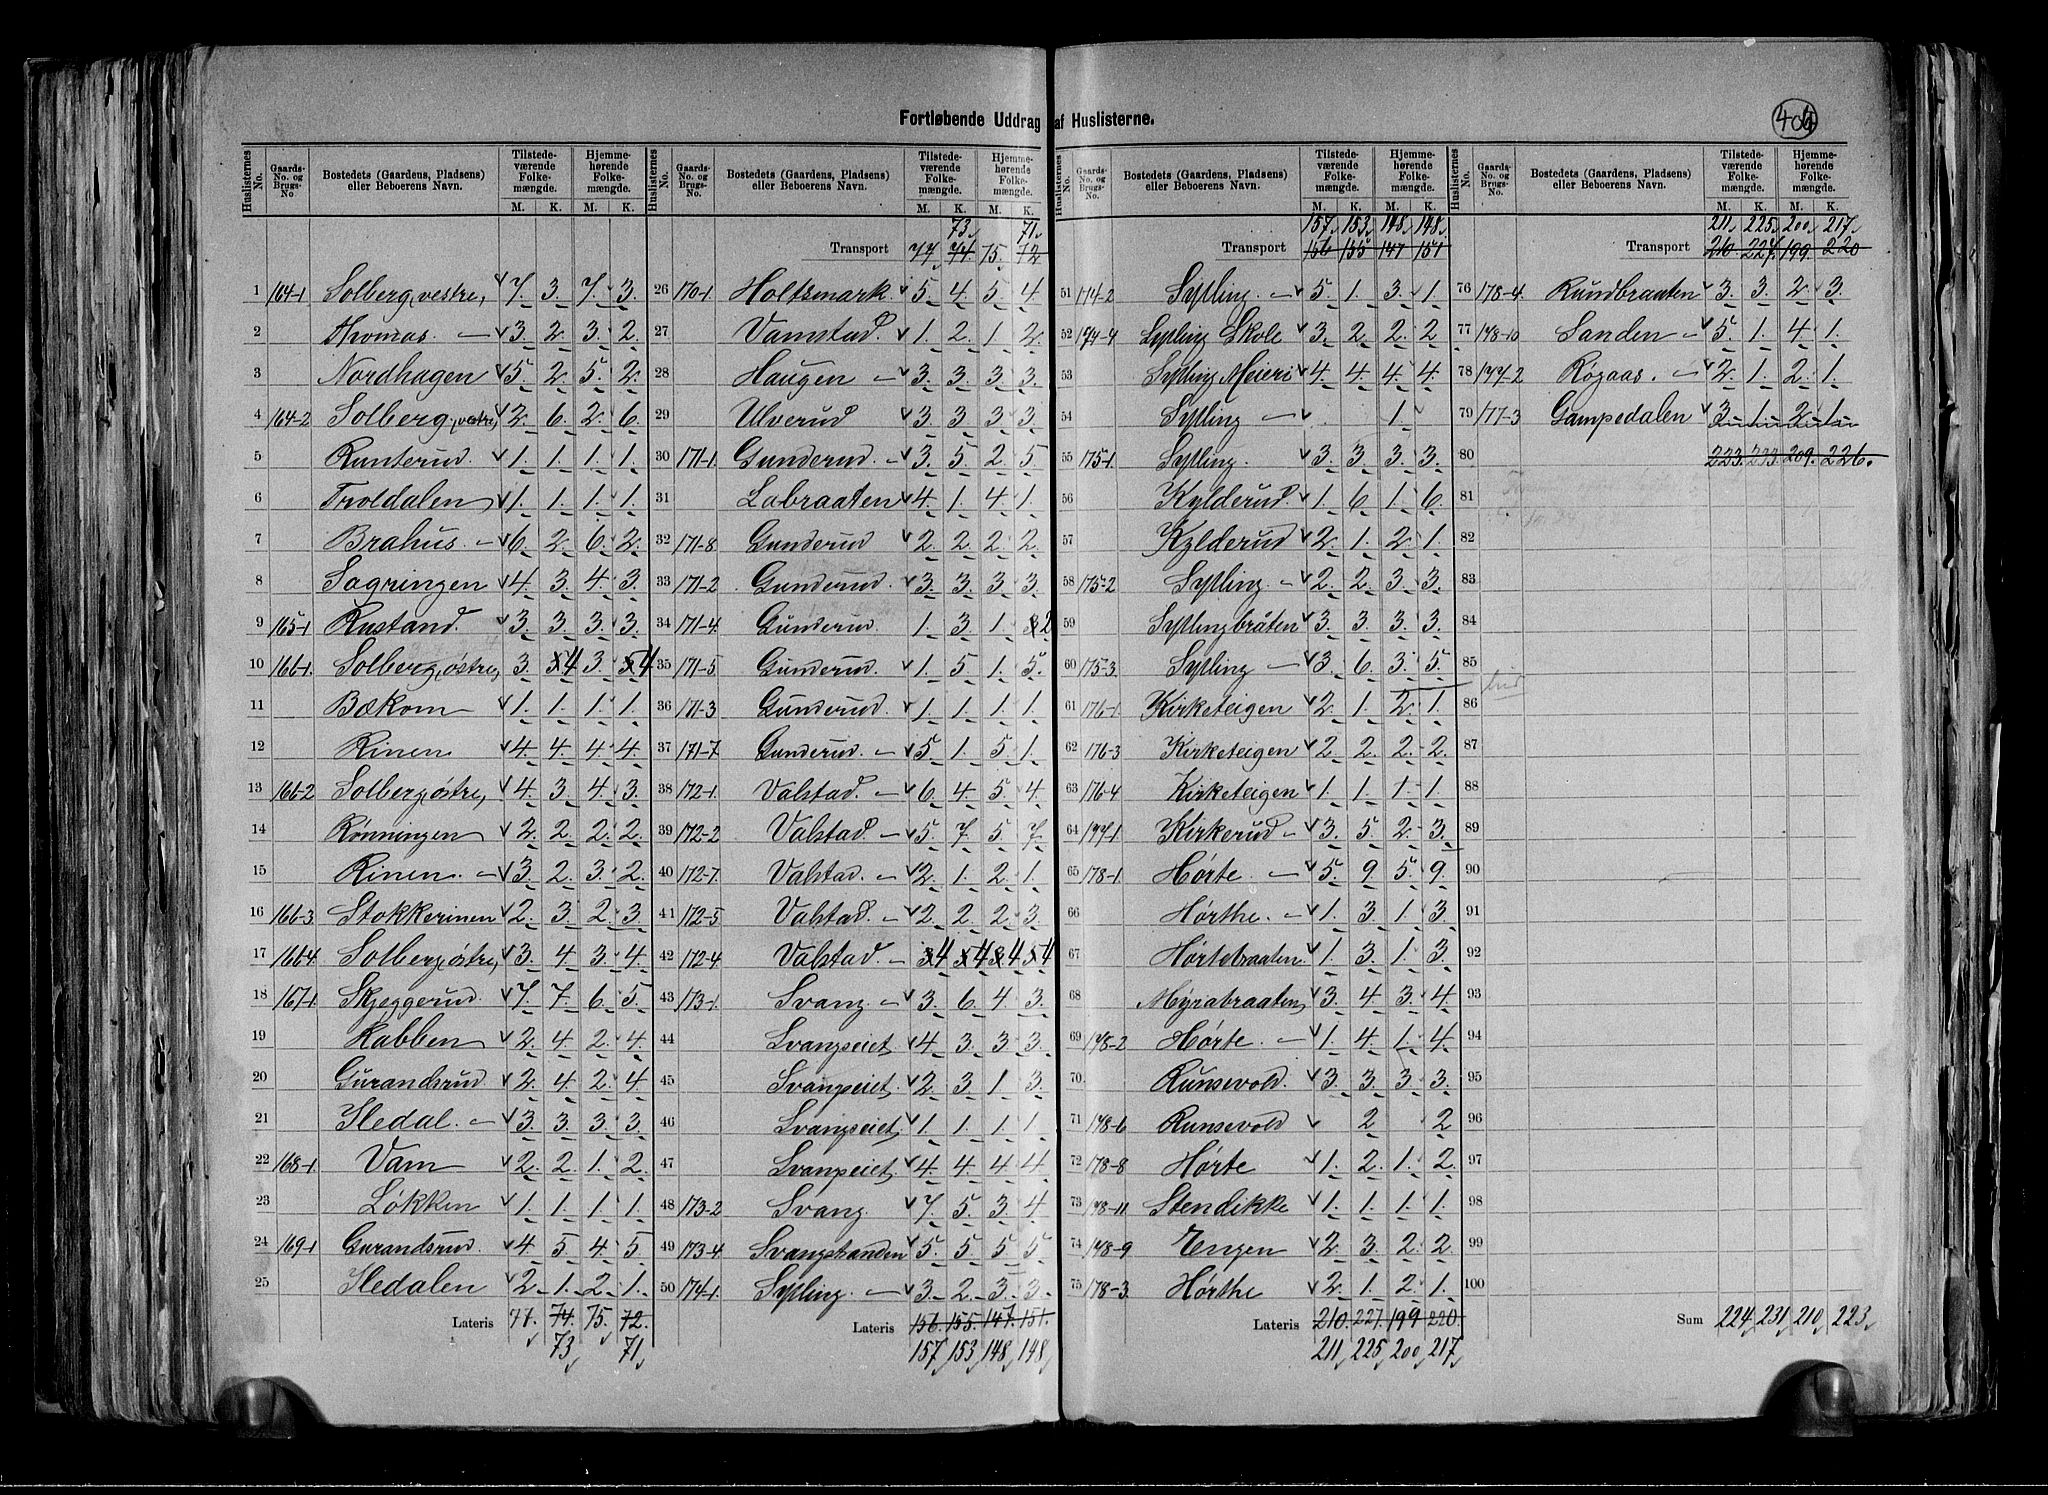 406
Fortløbende Uddrag af Huslisterne.
Huslisternes No. Gaards-No. og Brugs-No Bostedets (Gaardens, Pladsens) eller Beboerens Navn. Tilstedeværende Folkemængde. M. K. Hjemmehørende Folkemængde. M. K.
1 164-1 Solberg, vestre, v 7. 3. 7. 3.
2 Thomas. — v 3. 2. 3. 2.
3 Nordhagen v 5. 2. 5. 2.
4 164-2 Solberg, vestre, v 2. 6. 2. 6.
5 Runterud. v 1. 1. 1. 1.
6 Troldalen v 1. 1. 1. 1.
7 Brahus. — v 6. 2. 6. 2.
8 Sagringen v 4. 3. 4. 3.
9 165-1 Rustand. v 3. 3. 3. 3.
10 166-1. Solberg, østre, v 3. 4 3. 4
11 Bækom — v 1. 1. 1. 1.
12 Rinen v 4. 4. 4. 4.
13 166-2 Solberg, østre, v 4. 3. 4. 3.
14 Rønningen v 2. 2. 2. 2.
15 Rinen. — v 3. 2. 3. 2.
16 166-3 Stokkerinen v 2. 3. 2. 3.
17 166-4 Solberg, østre, v 3. 4. 3. 4.
18 167-1 Skjeggerud. v 7. 7. 6. 5.
19 Habben v 2. 4. 2. 4.
20 Gurandsrud v 2. 4. 2. 4.
21 Iledal. — v 3. 3. 3. 3.
22 168-1 Vam — v 2. 2. 1. 2.
23 Løkken v 1. 1. 1. 1.
24 169-1 Gurandsrud. v 4. 5. 4. 5.
25 Iledalen v 2. 1. 2. 1.
Lateris 77. 74. 75. 72.
73 71
Huslisternes No. Gaards-No. og Brugs-No. Bostedets (Gaardens, Pladsens) eller Beboerens Navn. Tilstedeværende Folkemængde. M. K. Hjemmehørende Folkemængde. M. K.
73 71
Transport 77 74 75. 72
26 170-1. Holtsmark. v 5. 4. 5. 4.
27 Vamstad. v 1. 2. 1. 2.
28 Haugen — v 3. 3. 3. 3.
29 Ulverud v 3. 3. 3. 3.
30 171-1. Gunderud. — v 3. 5. 2. 5.
31 Labraaten v 4. 1. 4. 1.
32 171-8. Gunderud v 2. 2. 2. 2.
33 171-2 Gunderud. v 3. 3. 3. 3.
34 171-4. Gunderud. 1. 3. 1. 2
35 171-5 Gunderud. v 1. 5. 1. 5.
36 171-3 Gunderud. v 1. 1. 1. 1.
37 171-7. Gunderud. — v 5. 1. 5. 1.
38 172-1. Valstad. — v 6. 4. 5. 4.
39 172-2 Valstad. — v 5. 7. 5. 7.
40 172-7. Valstad. — v 2. 1. 2. 1.
41 172-5 Valstad. — v 2. 2. 2. 3.
42 172-4 Valstad. — 4 4 4 4
43 173-1. Svang. — v 3. 6. 4. 3.
44 Svangseiet. v 4. 3. 3. 3.
45 Svangseiet v 2. 3. 1. 3.
46 Svangseiet. v 1. 1. 1. 1.
47 Svangseiet. v 4. 4. 4. 4.
48 173-2 Svang. v 7. 5. 3. 4.
49 173-4. Svangstranden v 5. 5. 5. 5.
50 174-1. Sylling. — v 3. 2. 3. 3.
Lateris 156. 155. 147. 151.
157 153 148 148
Huslisternes No. Gaards-No. og Brugs-No. Bostedets (Gaardens, Pladsens) eller Beboerens Navn. Tilstedeværende Folkemængde. M. K. Hjemmehørende Folkemængde. M. K.
157 153 148 148
Transport 156 155 147 151
51 174-2 Sylling. — v 5. 1. 3. 1.
52 174-4 Sylling Skole v 3. 2. 2. 2.
53 Sylling Meieri v 4. 4. 4. 4.
54 Sylling — v 1.
55 175-1. Sylling. v 3. 3. 3. 3.
56 Kylderud. v 1. 6. 1. 6.
57 Kylderud v 2. 1. 2. 1.
58 175-2 Sylling. — v 2. 2. 3. 3.
59 Syllingbråten v 3. 3. 3. 3.
60 175-3. Sylling — v 3. 6. 3. 5.
61 176-1. Kirketeigen v 2. 1. 2. 1.
62 176-3 Kirketeigen v 2. 2. 2. 2.
63 176-4 Kirketeigen v 1. 1. 1. 1.
64 177-1. Kirkerud — v 3. 5. 2. 3.
65 178-1. Hørte. — v 5. 9 5. 9.
66 Hørthe. — v 1. 3. 1. 3.
67 Hørtebraaten. v 1. 3. 1. 3.
68 Myrabraaten, v 3. 4. 3. 4.
69 178-2 Hørte. — v 1. 4. 1. 4.
70 Runsevold. v 3. 3. 3. 3.
71 178-6 Runsevold v 2. 2
72 178-8 Hørte v 1. 2. 1. 2.
73 178-11 Stendikke v 1. 1. 1. 1.
74 178-9 Engen v 2. 3. 2. 2.
75 178-3. Hørthe v 2. 1. 2. 1.
Lateris 210. 227. 199 220.
211 225 200 217
Huslisternes No. Gaards-No. og Brugs-No. Bostedets (Gaardens, Pladsens) eller Beboerens Navn. Tilstedeværende Folkemængde. M. K. Hjemmehørende Folkemængde. M. K.
211 225 200 217
Transport 210. 227. 199. 220
76 178-4. Rundbraaten v 3. 3. 2. 3.
77 178-10 Sanden — v 5. 1. 4. 1.
78 177-2 Røgaas. — v 2. 1. 2. 1.
79 177-3 Gampedalen v 3. 1. 2. 1.
80 223. 233. 209. 226.
81
82
83
84
85
86
87
88
89
90
91
92
93
94
95
96
97
98
99
100
Sum 224 231 210 223